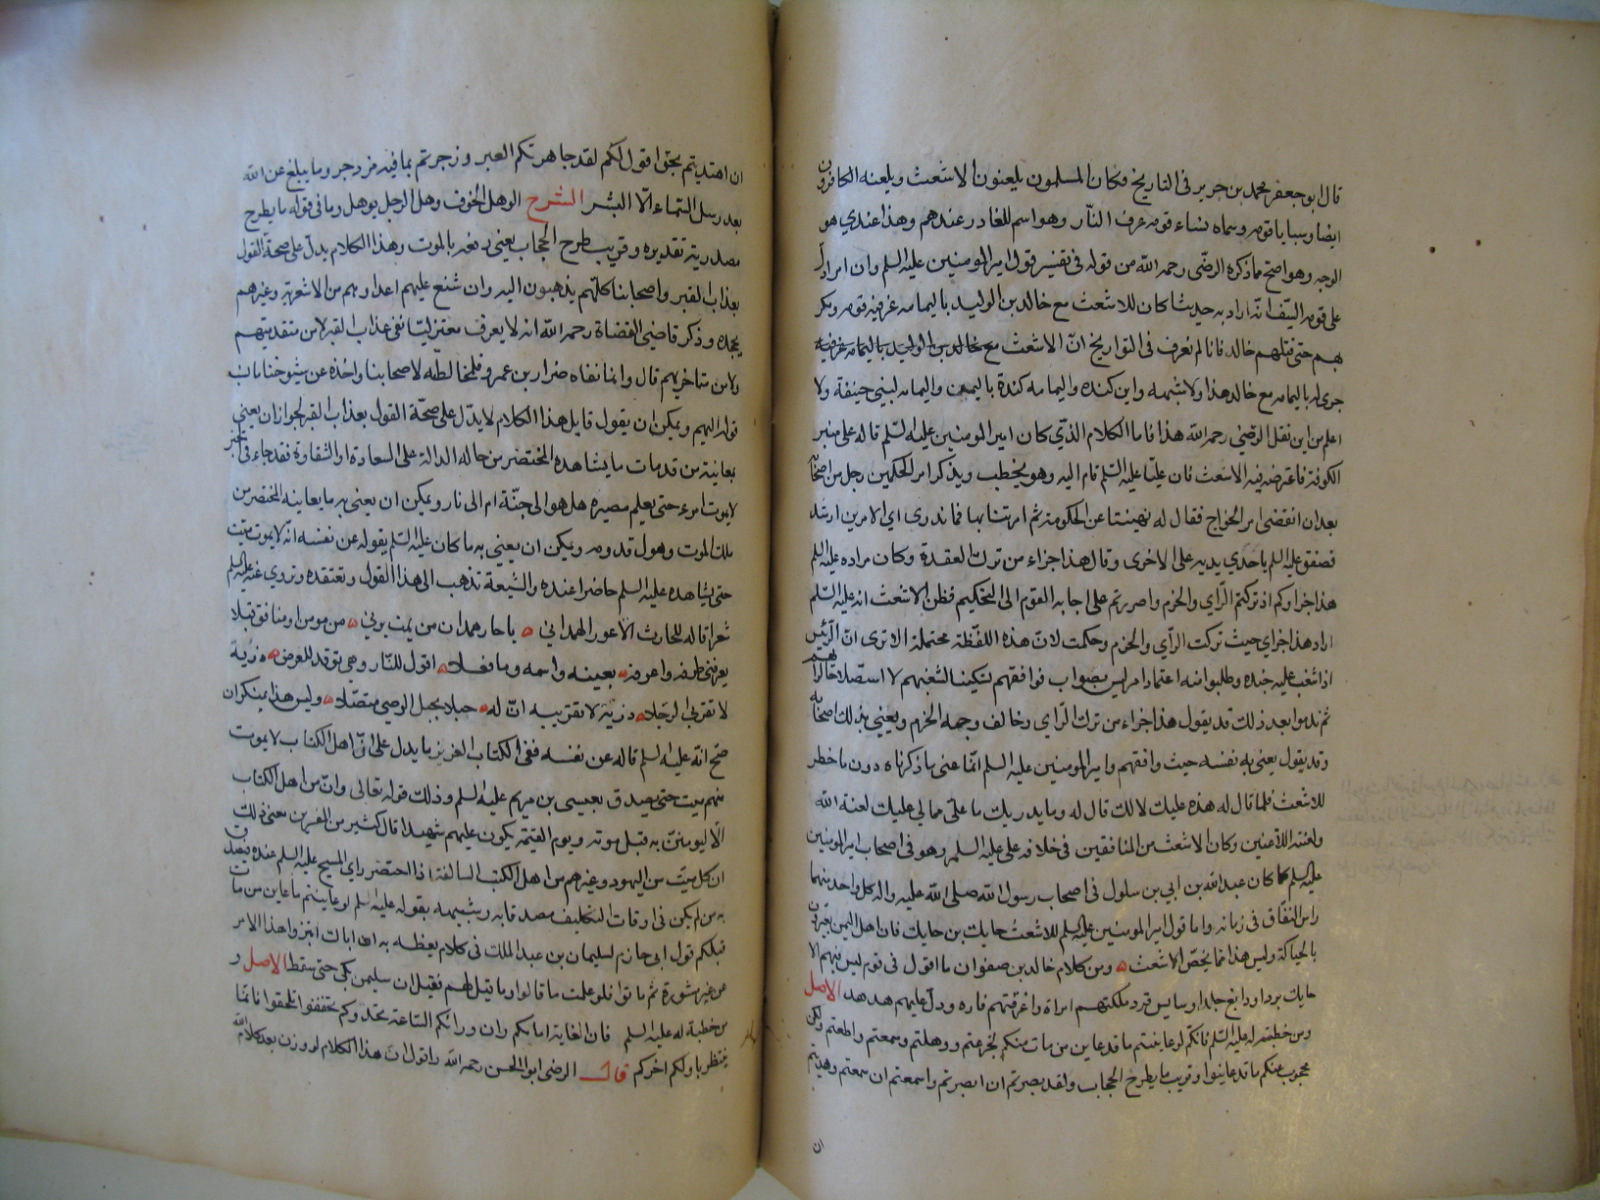 قال ابو جعفر محمد بن جرير فى التاريخ وكان المسلمون يلعنون الاشعث ويلعنه الكافرون
ايضا وسبايا قومه وسماه نساء قومه عرف النّار وهو اسم للغادر عندهم وهذا عندي هو
الوجه وهو اصح مما ذكره الرضّى رحمه الله من قوله فى تفسير قول امير المومنين عليه السلم وان امرا دل
على قومه السّيف انّه اراد به حديثا كان للاشعث مع خالد بن الوليد باليمامه غر فيه قومه ومكر
بهم حتى قتلهم خالد فانا لم نعرف فى التواريخ انّ الاشعث مع خالد بن الوليد باليمامه غر فيه
جرى له باليمامه مع خالد هذا ولا شبهه واين كنده واليمامه كندة باليمن واليمامه لبنى حنيفة ولا
اعلم من اين نقل الرضى رحمه الله هذا فاما الكلام الذي كان امير المومنين عليه السّلم قاله على منبر
الكوفة فاعترضه فيه الاشعث فان عليّا عليه السّلم قام اليه وهو يخطب ويذكر امر الحكمين رجل من اصحابه
بعد ان انقضى امر الخوارج فقال له نهيتنا عن الحكومة ثم امرتنا بها فما ندرى اي الامرين ارشد
فصفق عليه السلم باحدي يديه على الاخرى وقال هذا جزاء من ترك العقدة وكان مراده عليه السلم
هذا جزاوكم اذ تركتم الرّاي والحزم واصررتم على اجابه القوم الى التحكيم فظن الاشعث انه عليه السّلم
اراد هذا جزاي حيث تركت الرّاي والحزم وحكمت لانّ هذه اللفظة محتملة الا ترى انّ الرّئيس
اذا شغب عليه جنده وطلبوا منه اعتماد امر ليس بصواب فوافقهم تسكينا لشغبهم لا استصلاحا لرايهم
ثم ندموا بعد ذلك قد يقول هذا جزاء من ترك الرّاي وخالف وجه الحزم ويعني بذلك اصحابه
وقد يقول يعني به نفسه حيث وافقهم وامير المومنين عليه السلم انّما عنى ما ذكرناه دون ما خطر
للاشعث فلما قال له هذه عليك لا لك قال له وما يدريك ما علىّ مما لي عليك لعنة الله
ولعنة اللاعنين وكان الاشعث من المنافقين فى خلافه على عليه السلم وهو فى اصحاب امير المومنين
عليه السلم كما كان عبد الله بن ابي بن سلول فى اصحاب رسول الله صلى الله عليه واله كل واحد منهما
راس النفاق فى زمانه واما قول امير المومنين عليه السلم للاشعث حايك بن حايك فان اهل اليمن يعيرون
بالحياكة وليس هذا مما يخصّ الاشعث ومن كلام خالد بن صفوان ما اقول فى قوم ليس فيهم الا
حايك برد او دابغ جلد او سايس قرد ملكتهم امراة واغرقتهم فاره ودلّ عليهم هدهد الاصل
ومن خطبة له عليه السّلم فانّكم لو عاينتم ما قد عاين من مات منكم لجزعتم ووهلتم وسمعتم واطعتم ولكن
محجوب عنكم ما قد عاينوا وقريب ما يطرح الحجاب ولقد بصرتم ان ابصرتم واسمعتم ان سمعتم وهديتم
ان
ان اهتديتم بحق اقول لكم لقد جاهرتكم العبر وزجرتم بما فيه مزدجر وما يبلغ عن الله
بعد رسل السّماء الّا البشر الشرح الوهل الخوف وهل الرجل يوهل وما فى قوله ما يطرح
مصدرية تقديره وقريب طرح الحجاب يعني رفعه بالموت وهذا الكلام يدلّ على صحة القول
بعذاب القبر واصحابنا كلّهم يذهبون اليه وان شنع عليهم اعداوهم من الاشعرية وغيرهم
بجحده وذكر قاضي القضاة رحمه الله انه لا يعرف معتزليا نفى عذاب القبر لا من متقدميهم
ولا من متاخريهم قال وانما نفاه ضرار بن عمرو فلمخالطته لاصحابنا واخذه عن شيوخنا ما نسب
قوله اليهم ويمكن ان يقول قايل هذا الكلام لا يدّل على صحّة القول بعذاب القبر لجواز ان يعني
بمعاينة من قد مات ما يشاهده المحتضر من حاله الدالة على السعادة او الشقاوة فقد جاء فى الخبر
لا يموت امرء حتى يعلم مصيره هل هو الى جنّة ام الى نار ويمكن ان يعنى به ما يعاينه المحتضر من
ملك الموت وهول قدومه ويمكن ان يعني به ما كان عليه السّلم يقوله عن نفسه انّه لا يموت ميّت
حتى يشاهده عليه السلم حاضرا عنده والشّيعة تذهب الى هذا القول وتعتقده وتروي عنه عليه السلم
شعرا قاله للحارث الاعور الهمداني يا حار همدان من يمت يرني من مومن او منافق قبلا
يعرفني طرفه واعرفه بعينه واسمه وما فعلا اقول للنّار وهي توقد للعرض ذريه
لا تقربي الرجلا ذريه لا تقربيه انّ له حبلا بحبل الوصي متصلا وليس هذا بمنكر ان
صحّ انّه عليه السلم قاله عن نفسه ففى الكتاب العزيز ما يدل على انّ اهل الكتاب لا يموت
منهم ميت حتى يصدق بعيسى بن مريم عليه السلم وذلك قوله تعالى وانّ من اهل الكتاب
الّا ليومننّ به قبل موته ويوم القيمة يكون عليهم شهيدا قال كثير من المفسرين معنى ذلك
ان كل ميّت من اليهود وغيرهم من اهل الكتب السالفة اذا احتضر راى المسيح عليه السلم عنده فيصدق
به من لم يكن فى اوقات التكليف مصدقا به وشبيه بقوله عليه السلم لو عاينتم ما عاين من مات
قبلكم قول ابى حازم لسليمان بن عبد الملك فى كلام يعظه به ان اباءك ابتزوا هذا الامر
من غير مشورة ثم ماتوا فلو علمت ما قالوا وما قيل لهم فقيل ان سليمن بكى حتى سقط الاصل و
من خطبة له عليه السلم فان الغاية امامكم وان وراءكم السّاعة تحدوكم تخففوا تلحقوا فانّما
ينتظر باولكم اخركم قال الرضى ابو الحسن رحمه الله واقول انّ هذا الكلام لو وزن بعد كلام الله